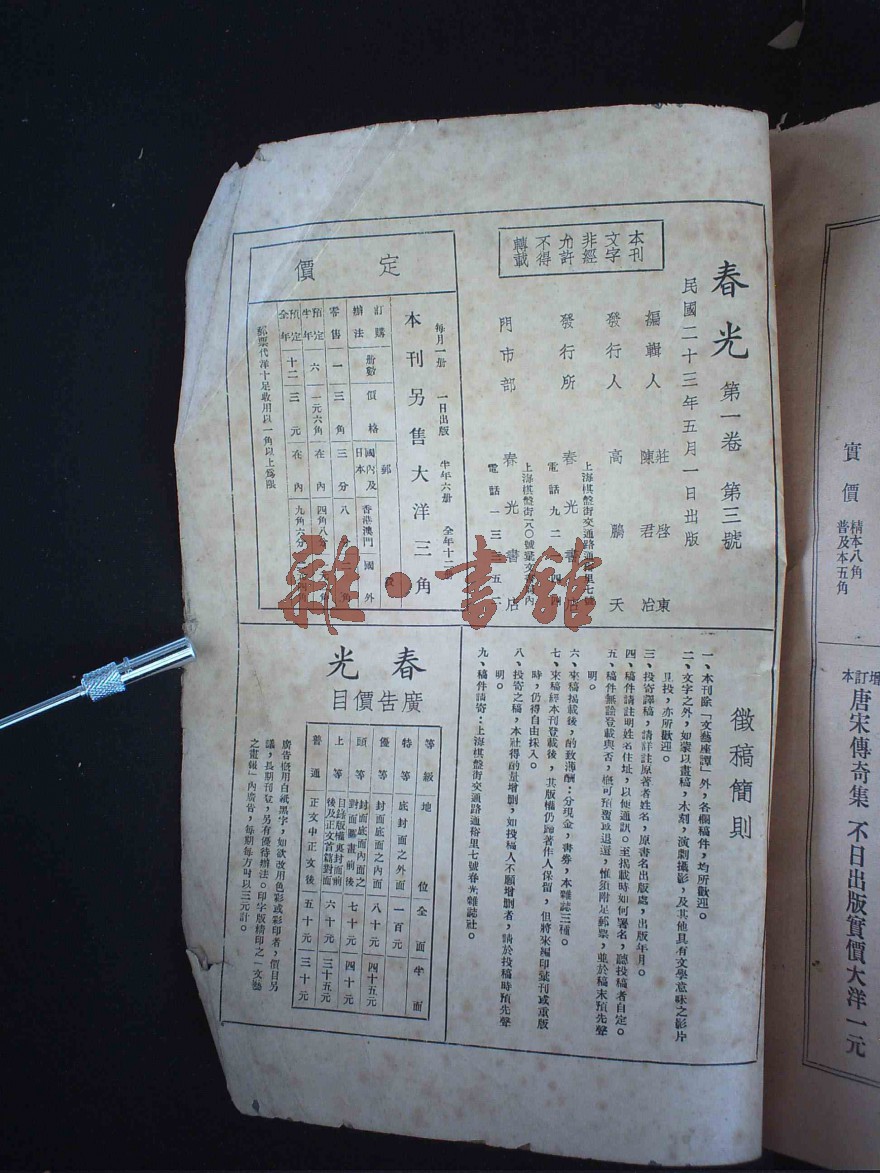 春光 第一卷 第三號
民國二十三年五月一日出版
編輯人 莊啓東
陳君冶
發行人 高鵬天
發行所 春光書店
上海棋盤街交通路通俗里七號
門市部 春光書店
本刊文字非經允許不得轉載
定價
每月一册 一日出版 半年六册 全年十二
本刊另售大洋三角
訂購辦法 册數 價格 郵 費
國內及日本 香港澳門 國外
零售 一 三角 三分 八
預定半年 六 一元六角 在內 四角八分
預定全年 十二 三元 在內 九角六分
郵票代洋十足收用以一角以上爲限
徵稿簡則
一、本刊除「文藝座譚」外，各欄稿件，均所歡迎。
二、文字之外，如蒙以畫稿，木刻，演劇攝影，及其他具有文學意味之影片
見投，亦所歡迎。
三、投寄譯稿，請詳註原著者姓名，原書名出版處，出版年月。
四、稿件請註明姓名住址，以便通訊。至揭載時如何署名，聽投稿者自定。
五、稿件無論登載與否，概可預覆或退還，惟須附足郵票，並於稿末預先聲
明。
六、來稿揭載後，酌致薄酬：分現金，書券，本雜誌三種。
七、來稿經本刊登載後，其版權仍歸著作人保留，但將來編印彙刊或重版
時，仍得自由採入。
八、投寄之稿，本社得酌量增删，如投稿人不願增删者，請於投稿時預先聲
明。
九、稿件請寄：上海棋盤街交通路通俗里七號春光雜誌社。
春光
廣告價目
等級 地位 全面 半面
特等 底封面之外面 一百元
優等 封面底面之內面 八十元 四十五元
頭等 封面底面內面之對面圖畫前後 七十元 四十元
上等 目錄版權裏封面前後及正文首篇對面 六十元 三十五元
普通 正文中正文後 五十元 三十元
廣告概用白紙黑字，如欲改用色彩或彩印者，價目另
議，長期刊登，另有優待辦法。印字版精印之「文藝
之畫報」內廣告，每期每方吋以三元計。
實價 精本八角
普及本五角
增訂本 唐宋傳奇集 不日出版實價大洋一元
雜·書館